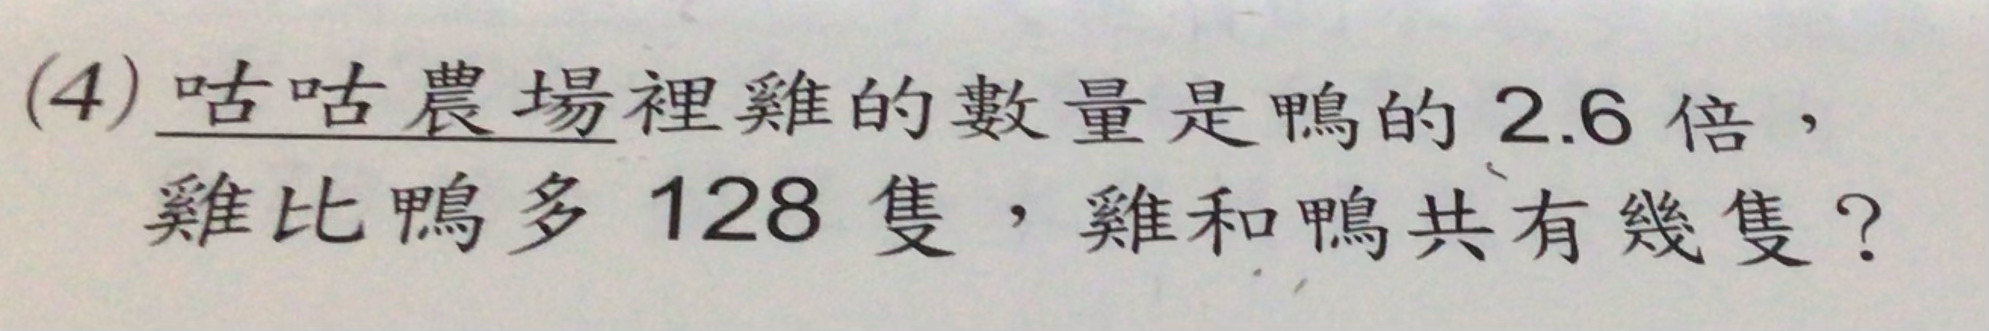 (4) 咕咕農場裡雞的數量是鴨的 2.6 倍，
雞比鴨多 128 隻，雞和鴨共有幾隻？